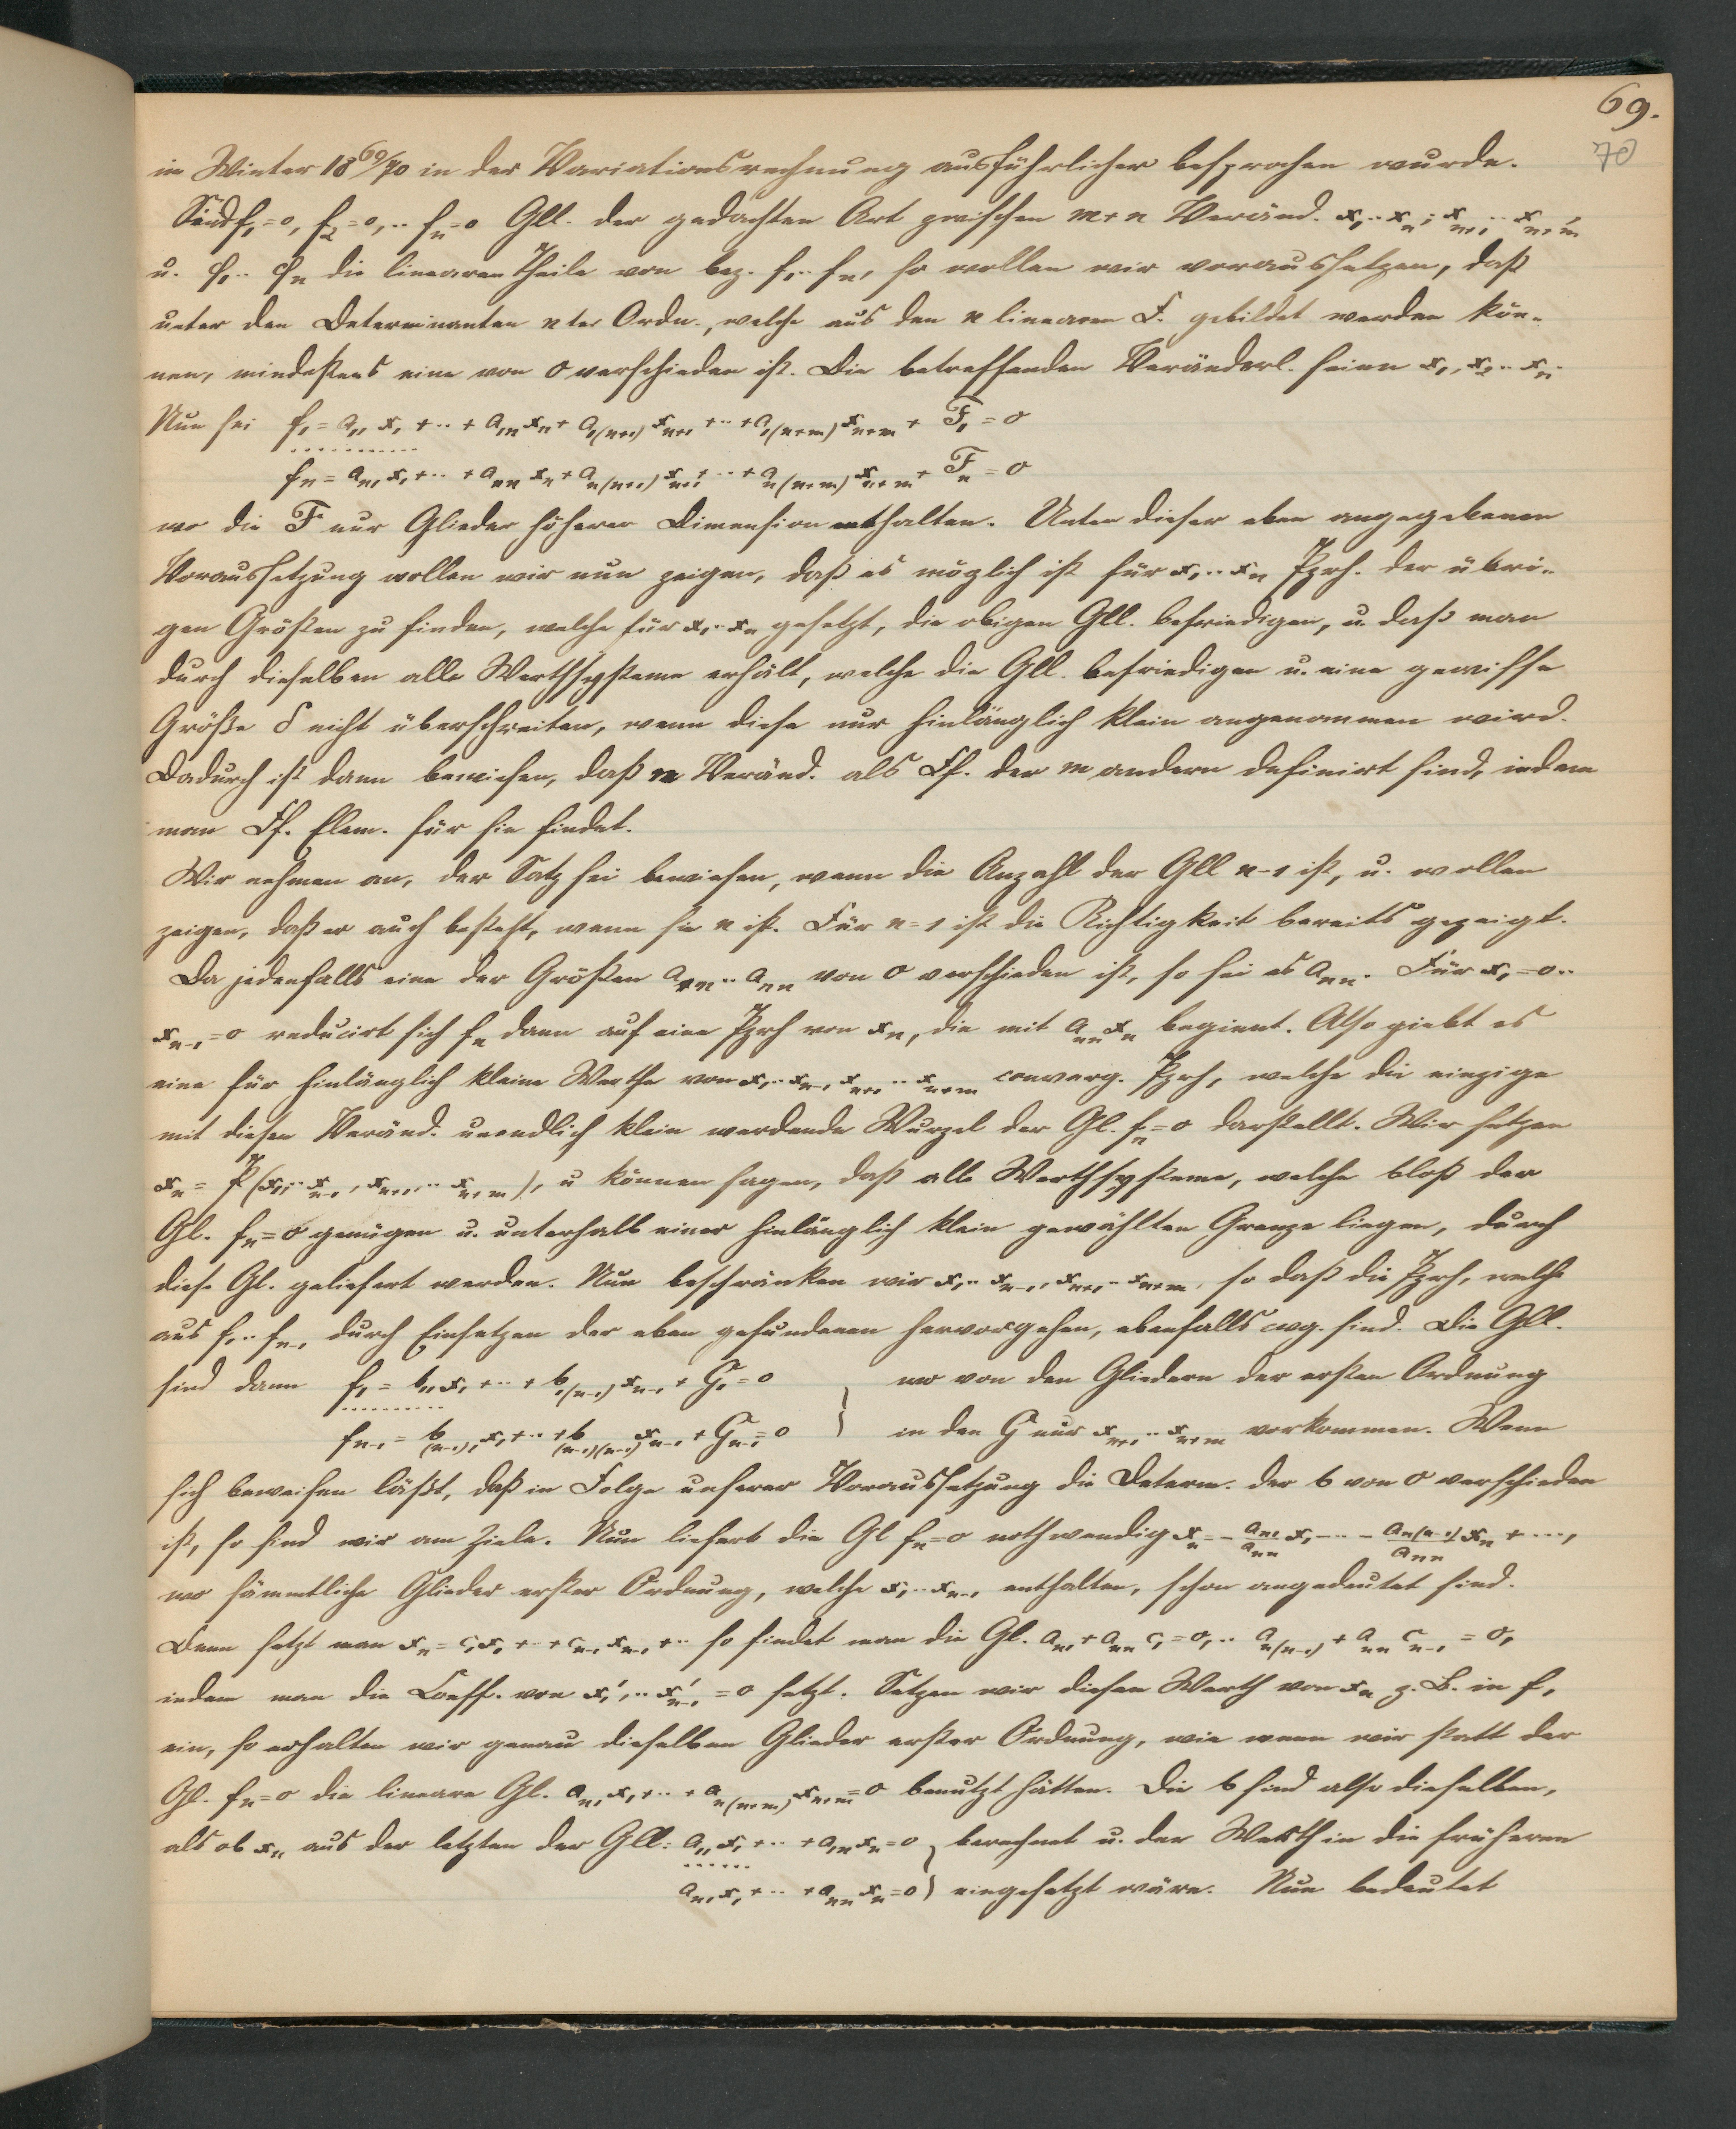 69.
70
im Winter 18 69/70 in der Variationsrechnung ausführlicher besprochen wurde.
Sind f₁=0, f₂=0,.. fₙ=0 Gll. der gedachten Art zwischen m+n Veränd. x₁..xₙ; xₙ₊₁..xₙ₊ₘ,
u. φ₁..φₙ die linearen Theile von bez. f₁..fₙ, so wollen wir voraussetzen, daß
unter den Determinanten nter Ordn., welche aus den n linearen F. gebildet werden kön-
nen, mindestens eine von 0 verschieden ist. Die betreffenden Veränderl. seien x₁, x₂..xₙ.
Nun sei f₁ = a₁₁x₁+··+a₁ₙxₙ+a₁₍ₙ₊₁₎xₙ₊₁+··+a₁₍ₙ₊ₘ₎xₙ₊ₘ+F₁ = 0
............
fₙ = aₙ₁x₁+··+aₙₙxₙ+aₙ₍ₙ₊₁₎xₙ₊₁+··+aₙ₍ₙ₊ₘ₎xₙ₊ₘ+Fₙ = 0
wo die F nur Glieder höherer Dimension enthalten. Unter dieser eben angegebenen
Voraussetzung wollen wir nun zeigen, daß es möglich ist für x₁..xₙ Pzrh. der übri-
gen Größen zu finden, welche für x₁..xₙ gesetzt, die obigen Gll. befriedigen, u. daß man
durch dieselben alle Werthsysteme erhält, welche die Gll. befriedigen u. eine gewisse
Größe δ nicht überschreiten, wenn diese nur hinlänglich klein angenommen wird.
Dadurch ist dann bewiesen, daß n Veränd. als Ff. der m andern definirt sind, indem
man Ff. Elem. für sie findet.
Wir nehmen an, der Satz sei bewiesen, wenn die Anzahl der Gll n-1 ist, u. wollen
zeigen, daß er auch besteht, wenn sie n ist. Für n=1 ist die Richtigkeit bereits gezeigt.
Da jedenfalls eine der Größen a₁ₙ..aₙₙ von 0 verschieden ist, so sei es aₙₙ. Für x₁=0..
xₙ₋₁=0 reducirt sich fₙ dann auf eine Pzrh von xₙ, die mit aₙₙxₙ beginnt. Also giebt es
eine für hinlänglich kleine Werthe von x₁..xₙ₋₁, xₙ₊₁..xₙ₊ₘ converg. Pzrh, welche die einzige
mit diesen Veränd. unendlich klein werdende Wurzel der Gl. fₙ=0 darstellt. Wir setzen
xₙ = P(x₁,..xₙ₋₁, xₙ₊₁,..xₙ₊ₘ), u können sagen, daß alle Werthsysteme, welche bloß der
Gl. fₙ=0 genügen u. unterhalb einer hinlänglich klein gewählten Grenze liegen, durch
diese Gl. geliefert werden. Nun beschränken wir x₁..xₙ₋₁, xₙ₊₁,..xₙ₊ₘ, so daß die Pzrh, welche
aus f₁..fₙ₋₁ durch Einsetzen der eben gefundenen hervorgehen, ebenfalls cvg. sind. Die Gll.
sind dann f₁ = b₁₁x₁+··+b₁₍ₙ₋₁₎xₙ₋₁+G₁=0 } wo von den Gliedern der ersten Ordnung
..........
fₙ₋₁ = b₍ₙ₋₁₎₁x₁+··+b₍ₙ₋₁₎₍ₙ₋₁₎xₙ₋₁+Gₙ₋₁=0 } in den G nur xₙ₊₁..xₙ₊ₘ vorkommen. Wenn
sich beweisen läßt, daß in Folge unserer Voraussetzung die Determ. der b von 0 verschieden
ist, so sind wir am Ziele. Nun liefert die Gl fₙ=0 nothwendig xₙ = -aₙ₁/aₙₙ x₁ -··- aₙ₍ₙ₋₁₎/aₙₙ xₙ + ···,
wo sämmtliche Glieder erster Ordnung, welche x₁..xₙ₋₁ enthalten, schon angedeutet sind.
Denn setzt man xₙ = c₁x₁+··+cₙ₋₁xₙ₋₁+·· so findet man die Gl. aₙ₁+aₙₙc₁=0,.. aₙ₍ₙ₋₁₎+aₙₙcₙ₋₁=0,
indem man die Coeff. von x₁',..xₙ₋₁' = 0 setzt. Setzen wir diesen Werth von xₙ z. B. in f₁
ein, so erhalten wir genau dieselben Glieder erster Ordnung, wie wenn wir statt der
Gl. fₙ=0 die lineare Gl. aₙ₁x₁+··+aₙ₍ₙ₊ₘ₎xₙ₊ₘ=0 benutzt hätten. Die b sind also dieselben,
als ob xₙ aus der letzten der Gll: a₁₁x₁+··+a₁ₙxₙ=0 } berechnet u. der Werth in die früheren
......
aₙ₁x₁+··+aₙₙxₙ=0 } eingesetzt wäre. Nun bedeutet